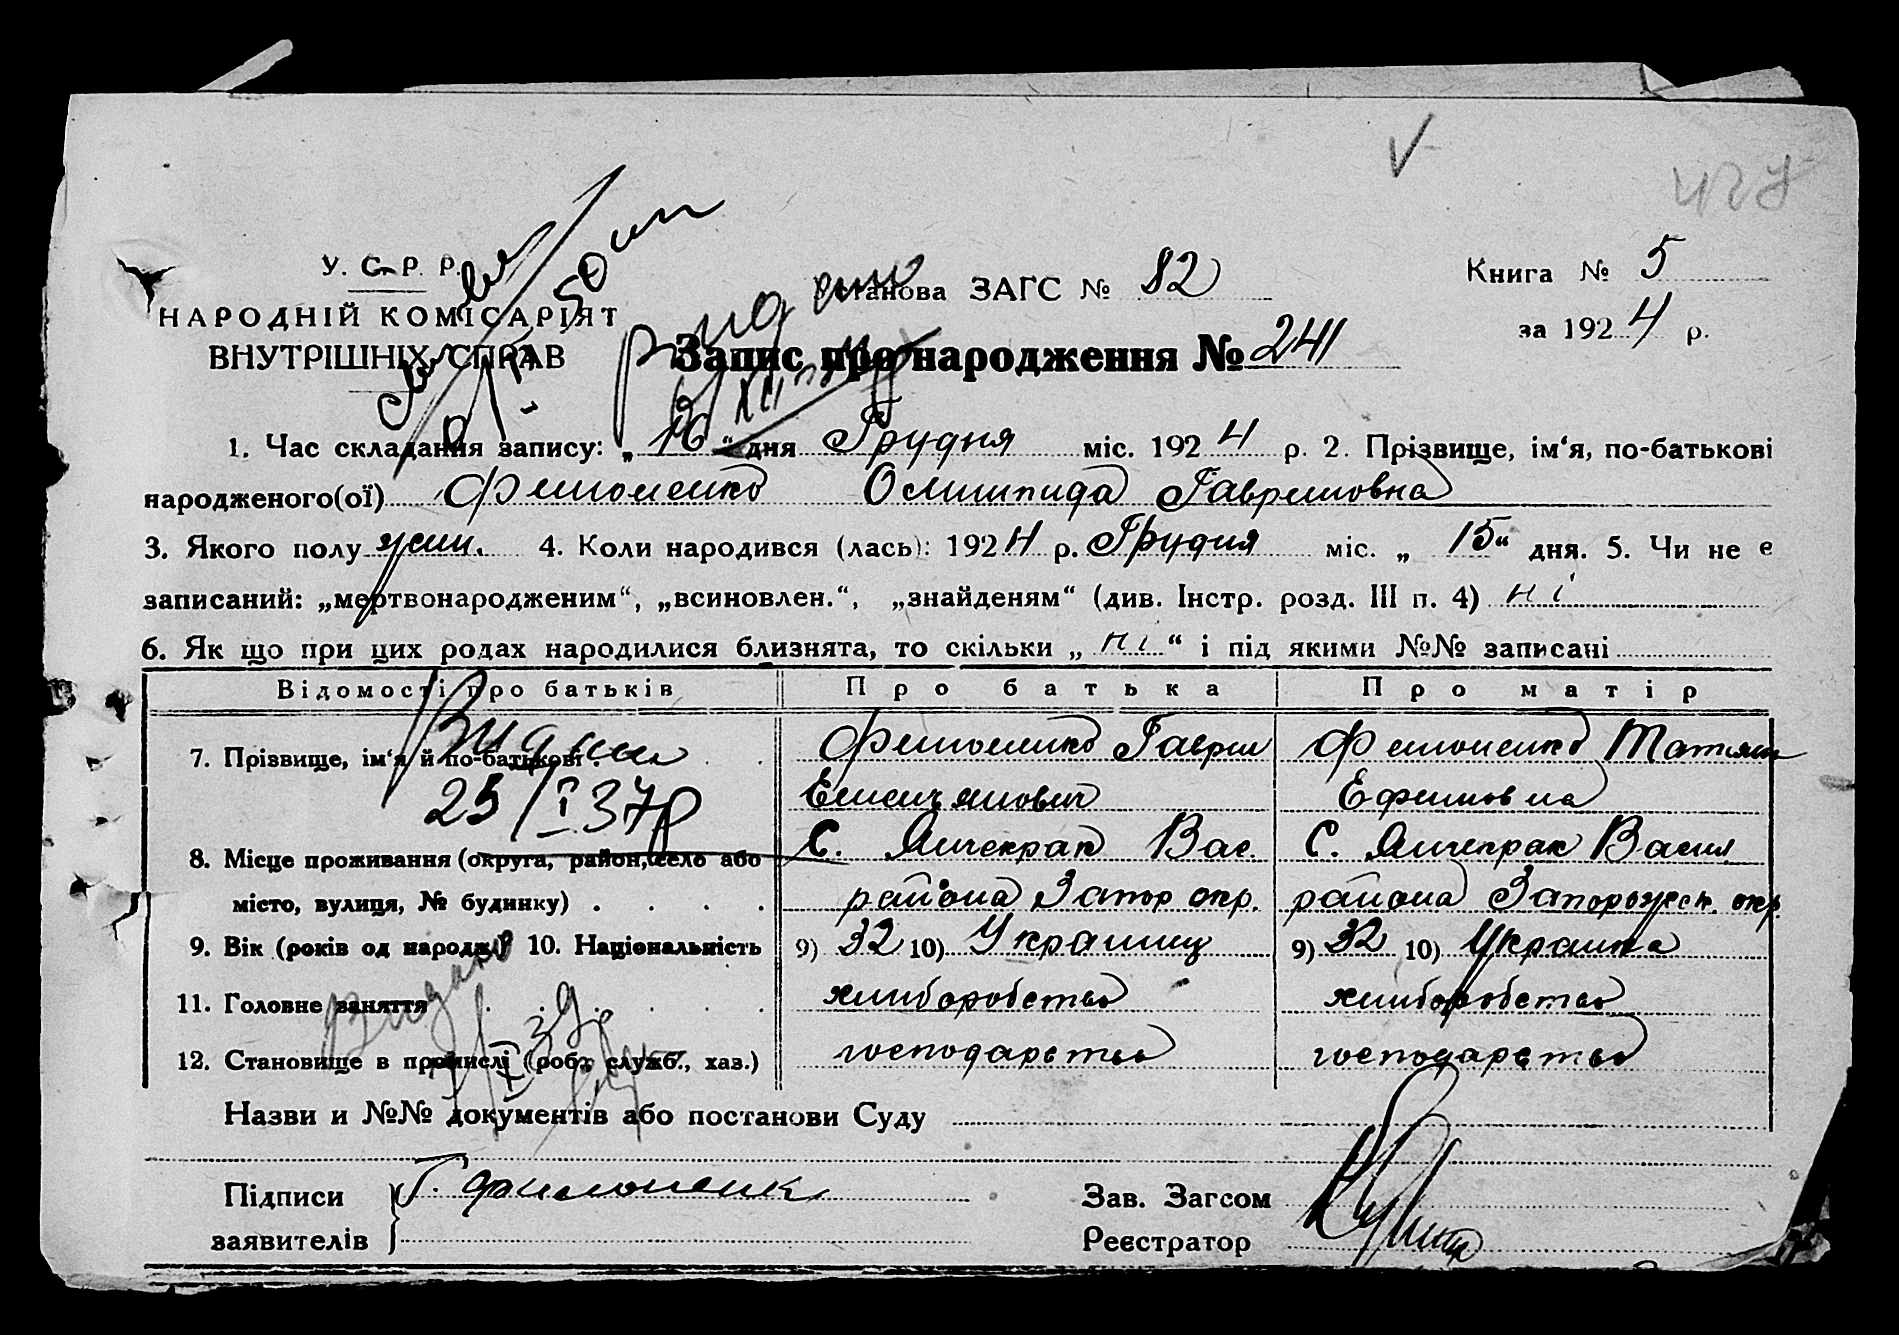 У. С. Р. Р.
НАРОДНІЙ КОМІСАРІЯТ
ВНУТРІШНІХ СПРАВ
Установа ЗАГС № 82
Книга № 5
за 1924 р.
Запис про народження № 241
1. Час складання запису: „16“ дня Грудня міс. 1924 р. 2. Прізвище, ім‘я, по-батькові
народженого(ої) Филоненко Олимпида Гавриловна
3. Якого полу жін. 4. Коли народився (лась): 1924 р. Грудня міс. „15“ дня. 5. Чи не є
записаний: „мертвонародженим“, „всиновлен.“, „знайденям“ (див. Інстр. розд. III п. 4) ні
6. Як що при цих родах народилися близнята, то скільки „ні“ і під якими №№ записані
Відомості про батьків Про батька Про матір
7. Прізвище, ім‘я й по-батькові Филоненко Гаврил Филоненко Татяна
Емельянович Ефимовна
25/I 37р
8. Місце проживання (округа, район, село або С. Янчекрак Вас. С. Янчекрак Васил
місто, вулиця, № будинку) района Запор окр. района Запорожск. окр.
9. Вік (років од народж.) 10. Національність 9) 32 10) Украинц 9) 32 10) Украинка
11. Головне заняття хлиборобство хлиборобство
12. Становище в промислі (роб., служб., хаз.) господарство господарство
Видано
Назви и №№ документів або постанови Суду
Підписи Г. Филоненк
заявителів
Зав. Загсом
Реєстратор